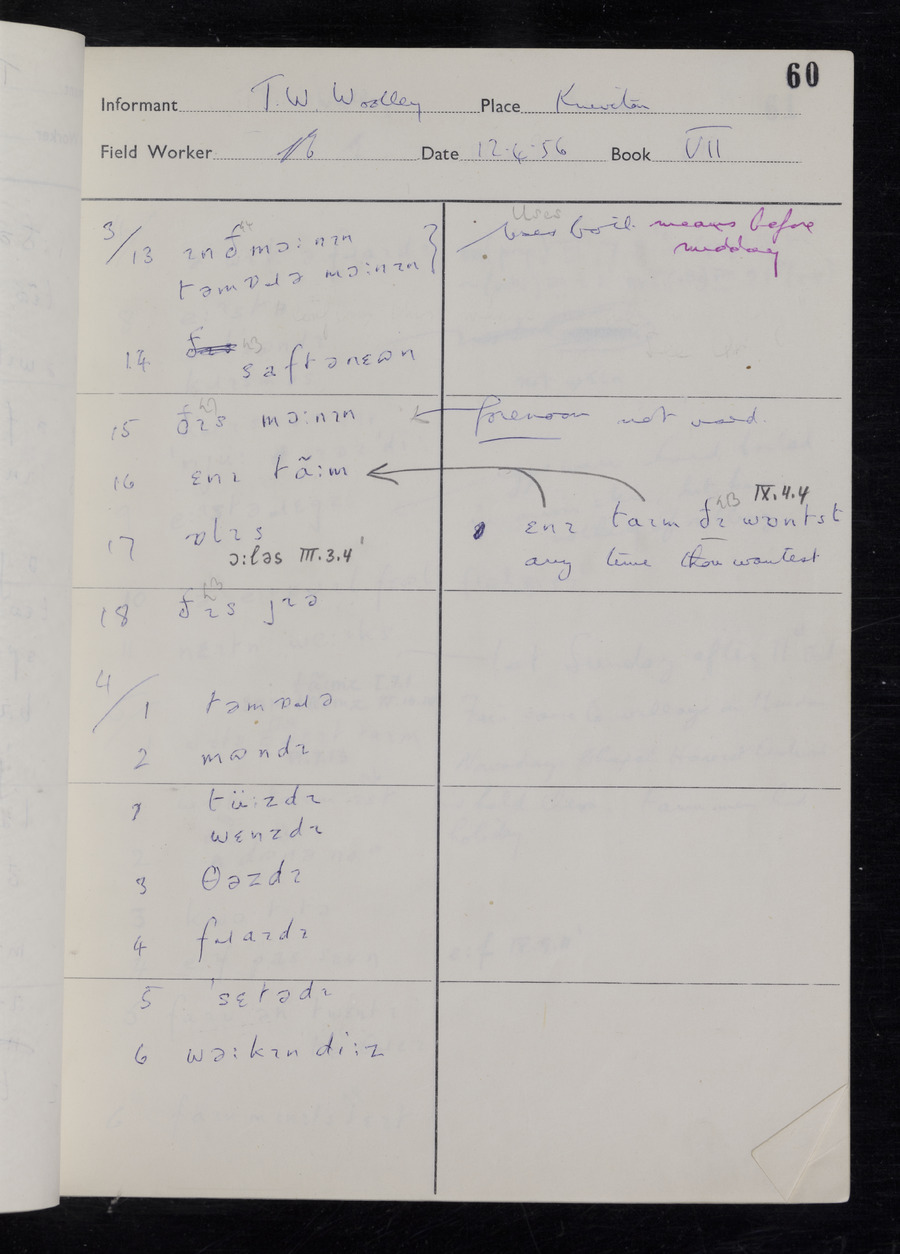 60
Informant T. W Woolley Place Kniveton
Field Worker Date 12·4·56 Book VII
3/13 ɪn ð mɔːnɪn
təmɒɹə mɔːnɪn
Uses both. means before
midday
14 saftənɛʊn
15 ðɪs mɔːnɪn
forenoon not used.
16 ɛnɪ tãːm
IX.4.4
ɛnɪ taɪm ðɪ wɒntst
any time thou wantest
17 ɒlɪs
ɔːləs III.3.4
18 ðɪs jɪə
4/1 təmɒɹə
2 mʊndɪ
tüːzdɪ
wɛnzdɪ
3 θəzdɪ
4 fɹaɪdɪ
5 ˈsɛtədɪ
6 wəːkɪn diːz